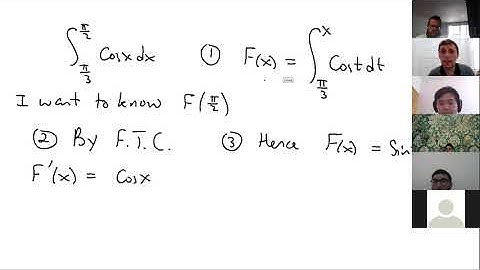 ∫_{π/3}^{π/2} Cosx dx  ① F(x) = ∫_{π/3}^{x} Cost dt
I want to know F(π/2)
② By F.T.C.  ③ Hence F(x) = Sin
F'(x) = Cosx